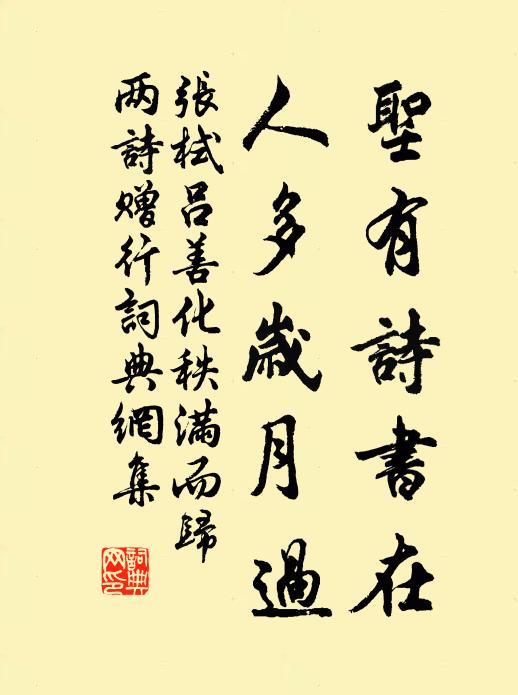 聖有詩書在
人多歲月過
張栻呂善化秩滿而歸
两詩贈行詞典網集
詞典
网印